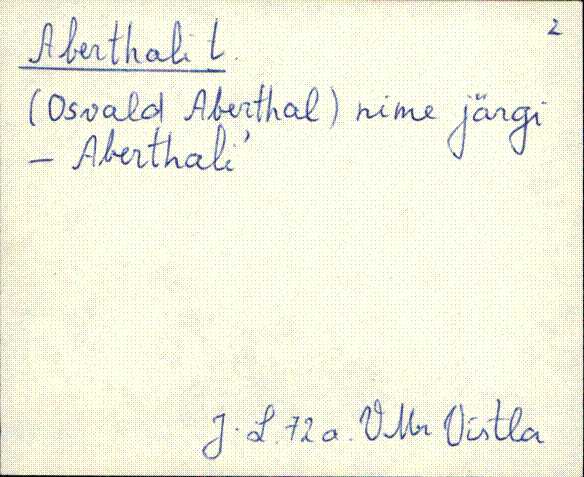 2
Aberthali t.
(Osvald Aberthal) nime järgi
– Aberthali'
J. L. 72 a. VMr Vistla